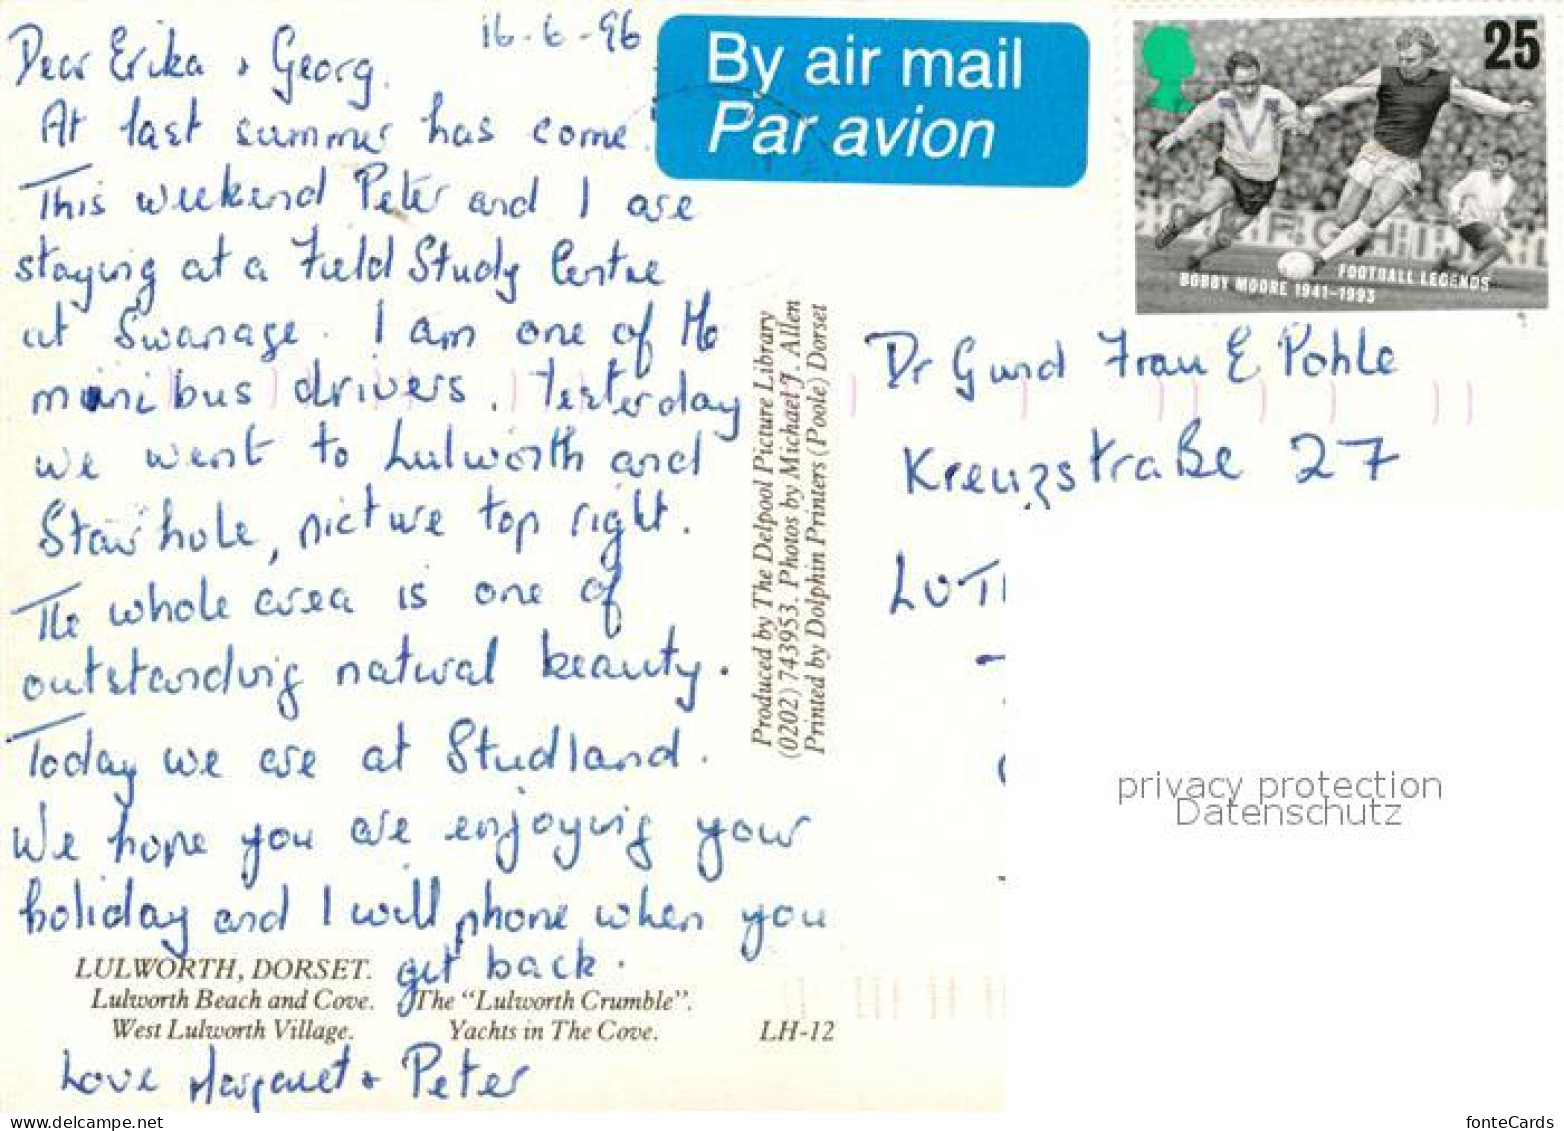 16-6-96
Dear Erika + Georg.
At last summer has come!
This weekend Peter and I are
staying at a Field Study Centre
at Swanage. I am one of the
minibus drivers. Yesterday
we went to Lulworth and
Stairhole, picture top right.
The whole area is one of
outstanding natural beauty.
Today we are at Studland.
We hope you are enjoying your
holiday and I will phone when you
get back.
Love Margaret + Peter
LULWORTH, DORSET.
Lulworth Beach and Cove. The "Lulworth Crumble".
West Lulworth Village. Yachts in The Cove.
LH-12
Produced by The Delpool Picture Library
(0202) 743953. Photos by Michael J. Allen
Printed by Dolphin Printers (Poole) Dorset
By air mail
Par avion
25
BOBBY MOORE 1941-1993
FOOTBALL LEGENDS
Dr G und Frau E Pohle
Kreuzstraße 27
privacy protection
Datenschutz
www.delcampe.net
fonteCards